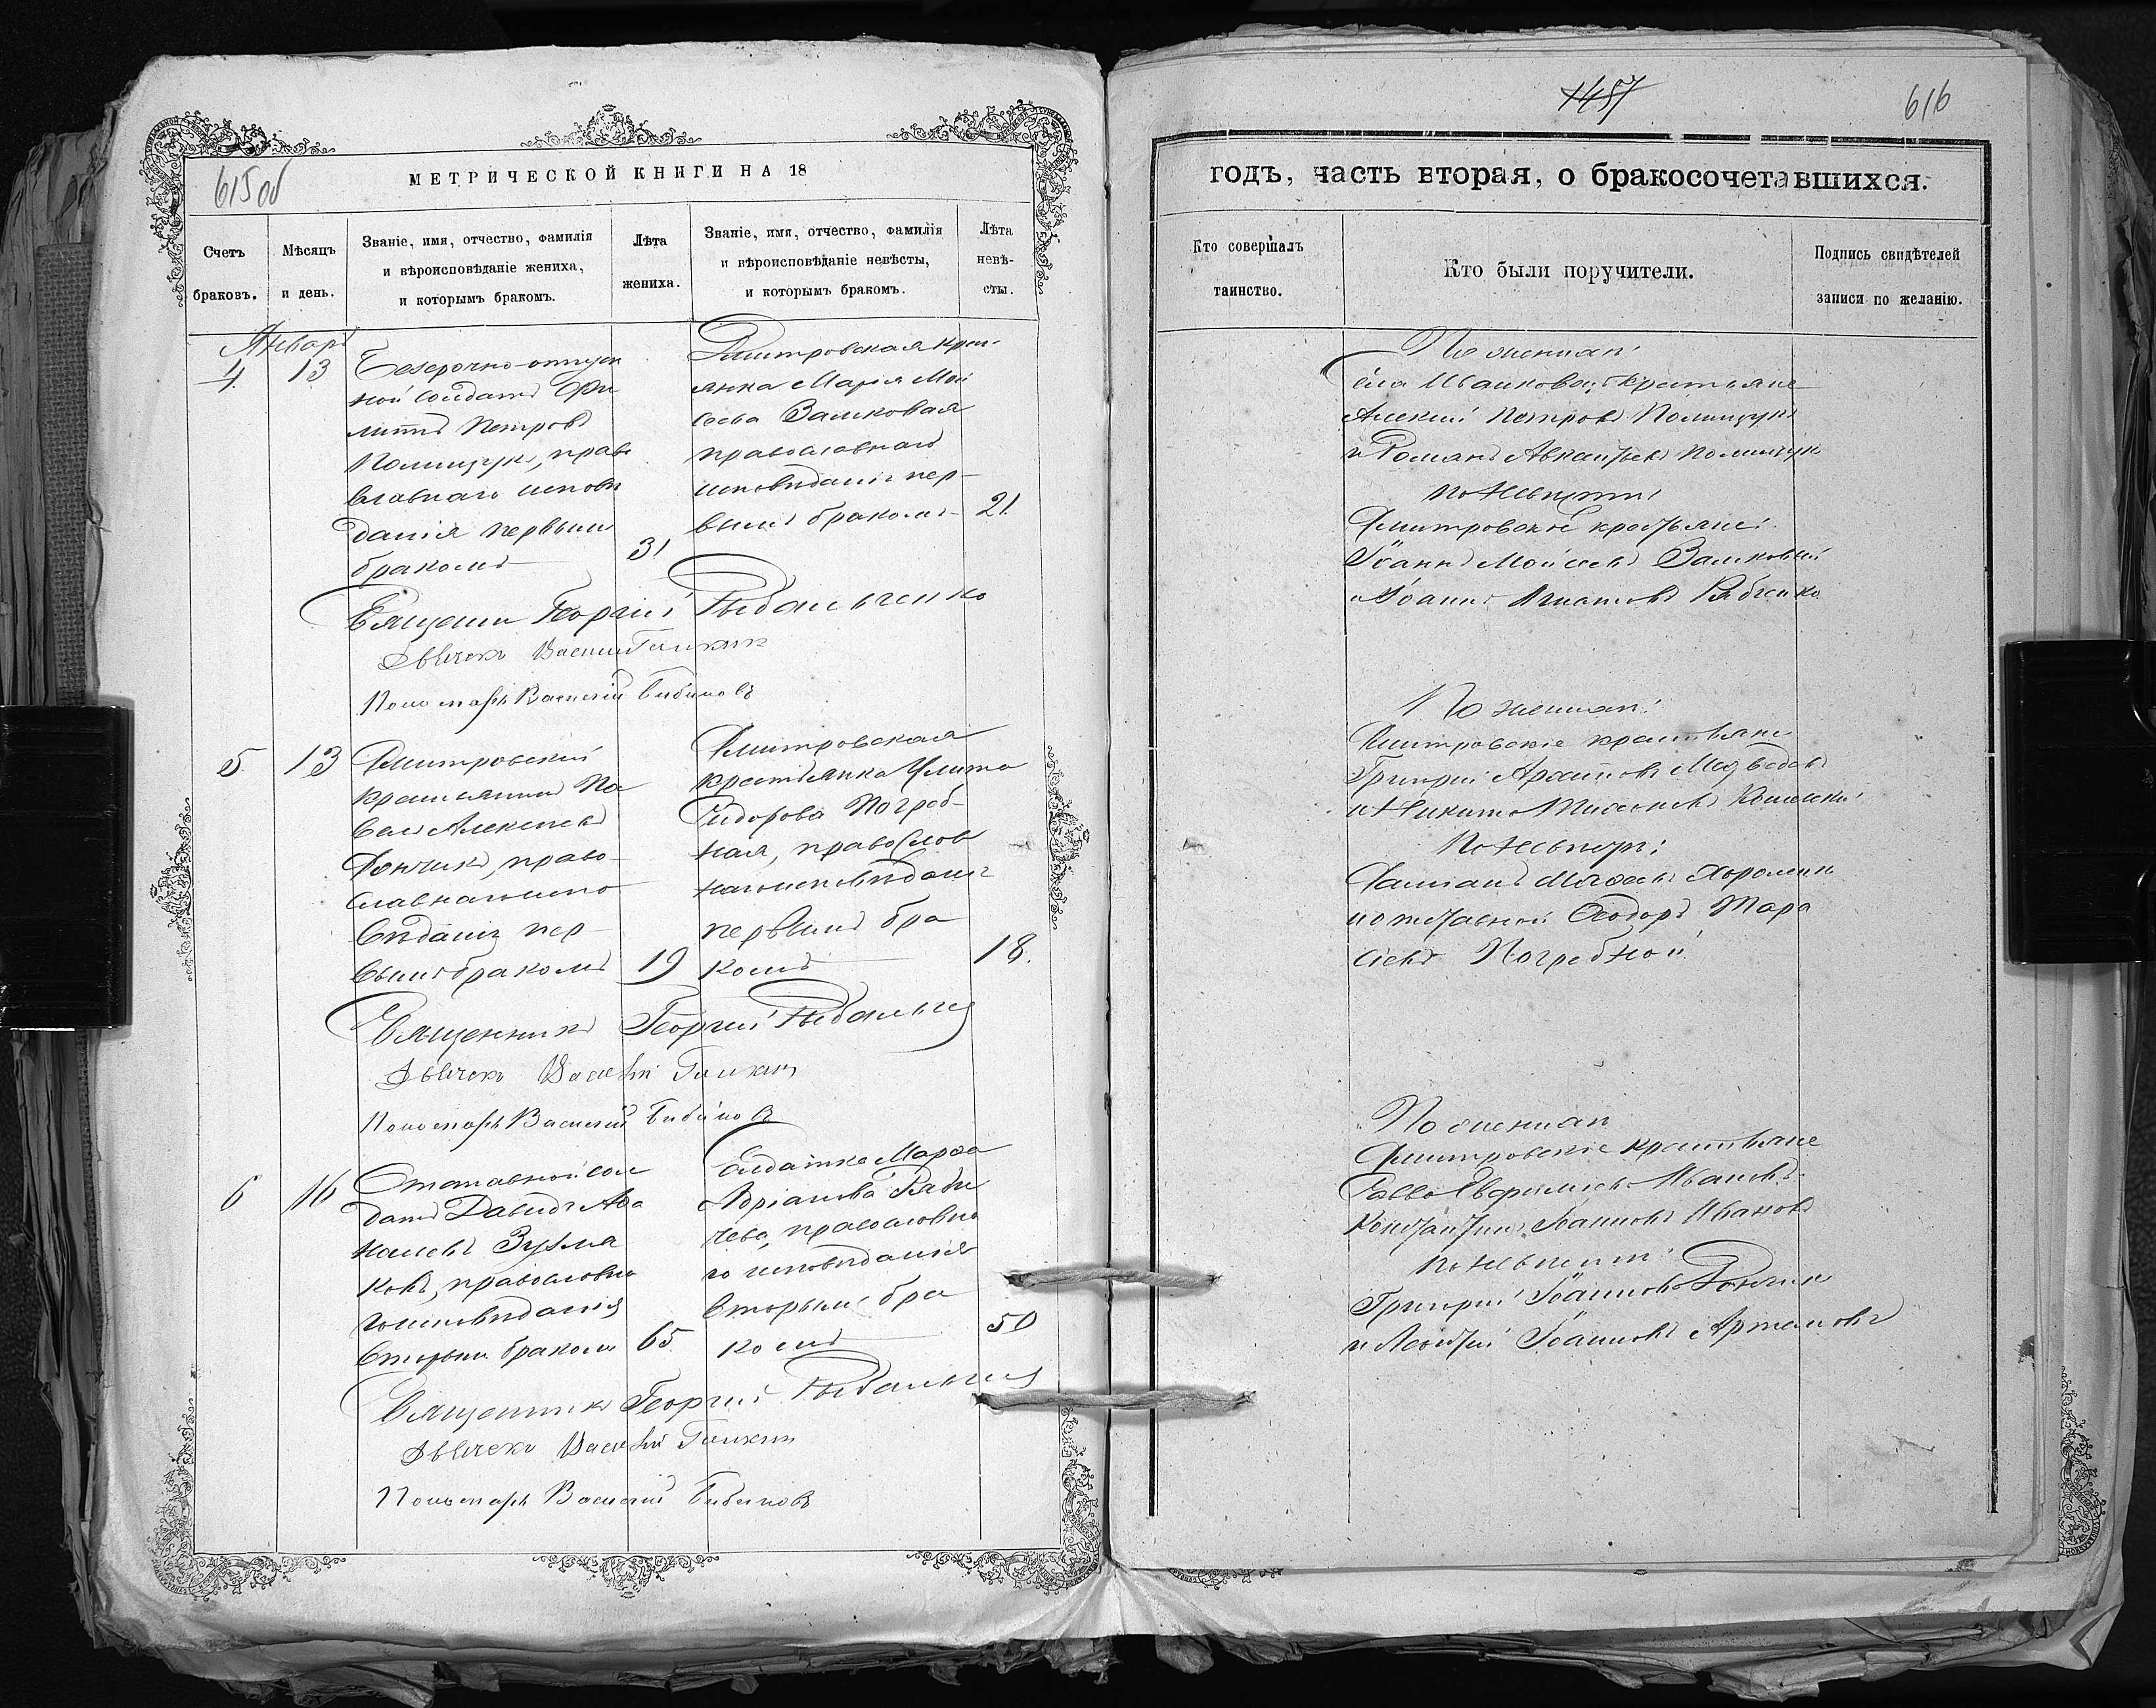 615об
МЕТРИЧЕСКОЙ КНИГИ НА 18
Счетъ браковъ.
Мѣсяцъ и день.
Званіе, имя, отчество, фамилія
и вѣроисповѣданіе жениха,
и которымъ бракомъ.
Лѣта жениха.
Званіе, имя, отчество, фамилія
и вѣроисповѣданіе невѣсты,
и которымъ бракомъ.
Лѣта невѣ-
сты.
Январь
4.
13
Безсрочно-отпуск
ной солдатъ Фи
липпъ Петровъ
Полищукъ, право
славнаго исповѣ
данія первымъ
бракомъ
31
Дмитровская крес
янка Марія Мои
сеева Замковая
православнаго
исповѣданія пер-
вымъ бракомъ
21.
Священни Георгій Рыбальченко
Дьячекъ Василій
Пономарь Василій Бибиковъ
5.
13
Дмитровскій
крестьянинъ Па
велъ Алексѣевъ
Дончикъ, право-
славнаго испо
вѣданія пер-
вымъ бракомъ
19
Дмитровская
крестьянка Улита
Сидорова Погреб-
ная, православ
наго исповѣданія
первымъ бра
комъ
18.
Священникъ Георгій Рыбальче
Дьячекъ Василій
Пономарь Василій Бибиковъ
6
16
Отставной сол
датъ Давидъ Аѳа
насьевъ
ковъ, православна
го исповѣданія
вторымъ бракомъ
65.
Солдатка Марѳа
Адріанова
чева, православна
го исповѣданія
вторымъ бра
комъ
50
Священникъ Георгій Рыбальче
Дьячекъ Василій
Пономарь Василій Бибиковъ
1457
616
годъ, часть вторая, о бракосочетавшихся.
Кто совершалъ
таинство.
Кто были поручители.
Подпись свидѣтелей
записи по желанію.
По женихѣ:
Села Иванковецъ крестьяне
Алексій Петровъ Полищукъ
и Романъ Полищукъ
по невѣстѣ:
Дмитровскіе крестьяне:
Іоаннъ Моисеевъ Замковый
и Іоаннъ Игнатовъ Рябченко
По женихѣ:
Дмитровскіе крестьяне
Григорій Архиповъ Медведевъ
и Никита
По невѣстѣ:
Даміанъ
и отставной Ѳеодоръ Тара
сіевъ Погребной
По женихѣ
Дмитровскіе крестьяне
Савва Ивановъ
Константинъ Іоанновъ Ивановъ
по невѣстѣ:
Григорій Іоанновъ Дончикъ
и Леонтій Іоанновъ Артемовъ